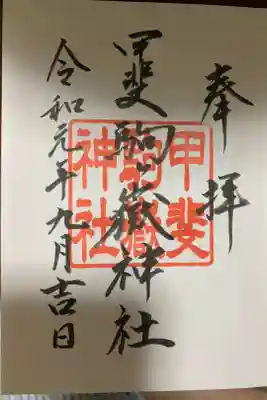 奉拝
甲斐駒ヶ嶽神社
甲斐
駒嶽
神社
令和元年九月吉日